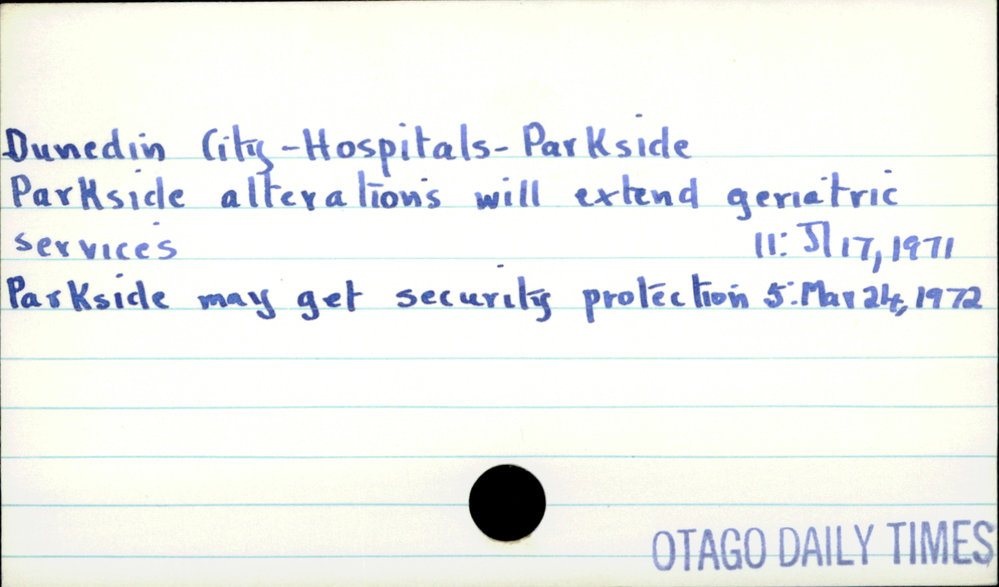 Dunedin City - Hospitals - Parkside
Parkside alterations will extend geriatric
services 11: Jl 17, 1971
Parkside may get security protection 5: Mar 24, 1972
OTAGO DAILY TIMES